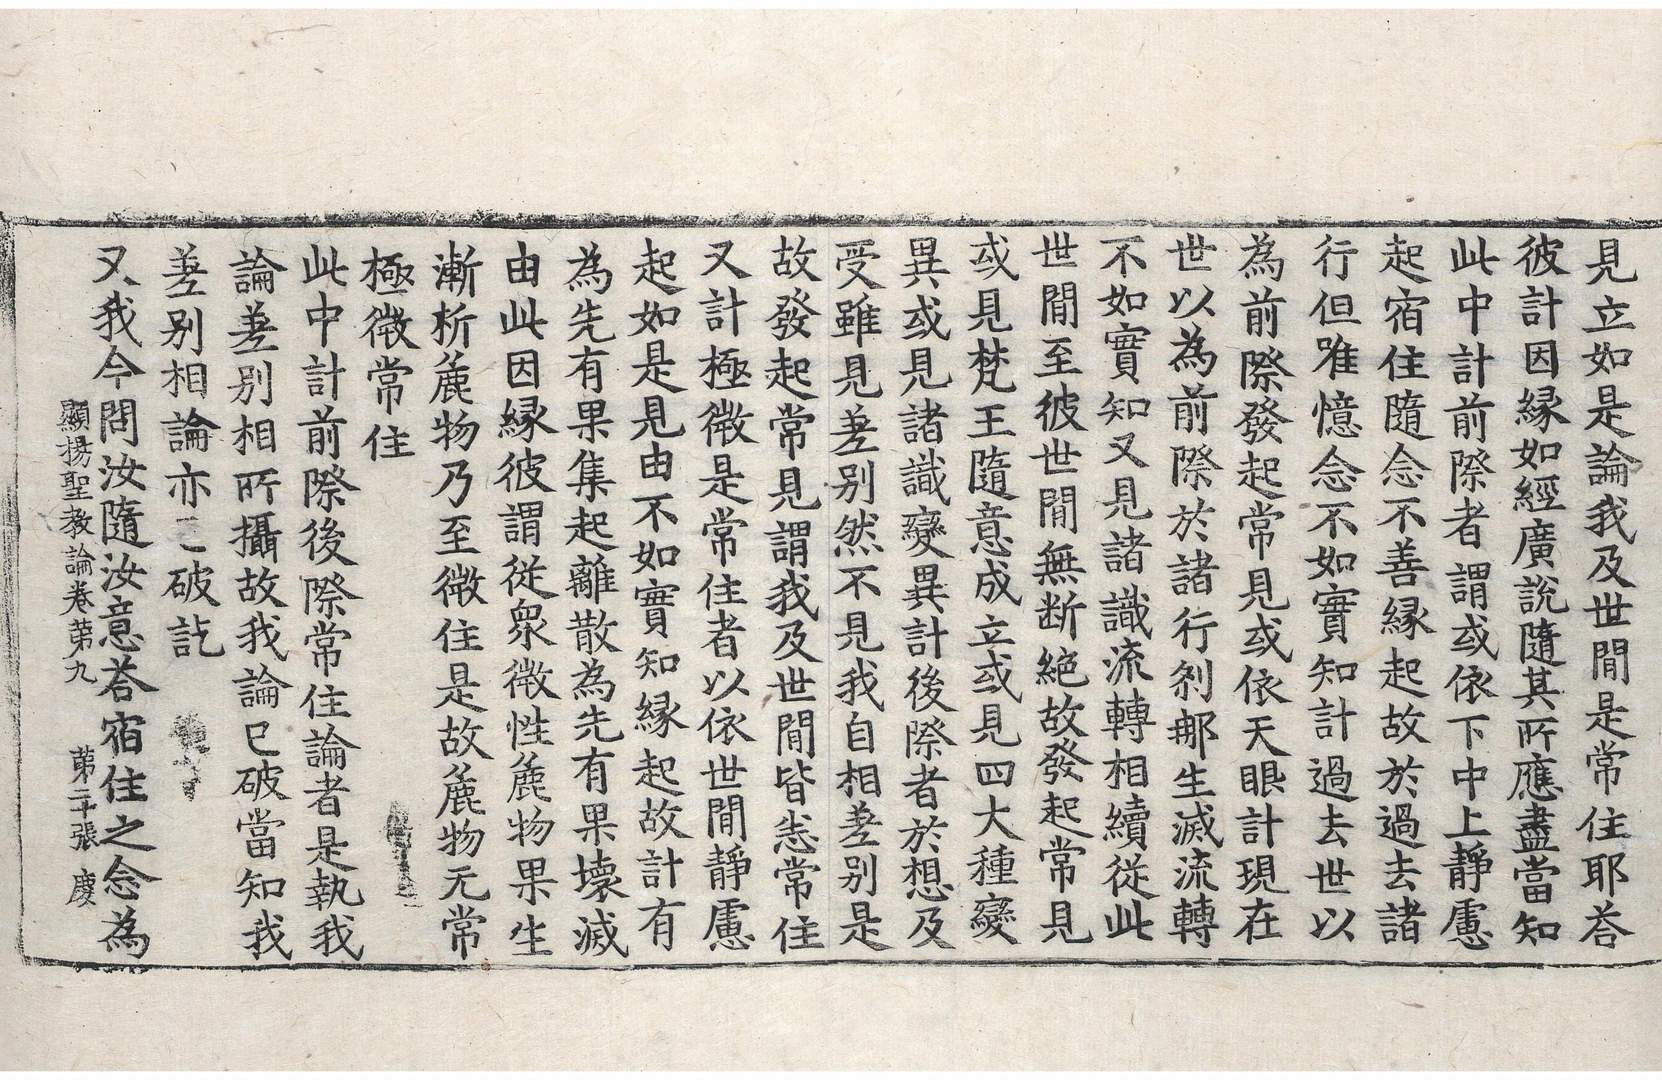 見立如是論我及世間是常住耶荅
彼計因縁如經廣說隨其所應盡當知
此中計前際者謂或依下中上靜慮
起宿住隨念不善縁起故於過去諸
行但唯憶念不如實知計過去世以
為前際發起常見或依天眼計現在
世以為前際於諸行剎那生滅流轉
不如實知又見諸識流轉相續從此
世間至彼世間無断絕故發起常見
或見梵王隨意成立或見四大種變
異或見諸識變異計後際者於想及
受雖見差别然不見我自相差别是
故發起常見謂我及世間皆悉常住
又計極微是常住者以依世間靜慮
起如是見由不如實知縁起故計有
為先有果集起離散為先有果壞滅
由此因縁彼謂從衆微性麁物果生
漸析麁物乃至微住是故麁物无常
極微常住
此中計前際後際常住論者是執我
論差别相所攝故我論已破當知我
差别相論亦已破訖
又我今問汝隨汝意荅宿住之念為
顯揚聖教論卷苐九 苐二十張 慶